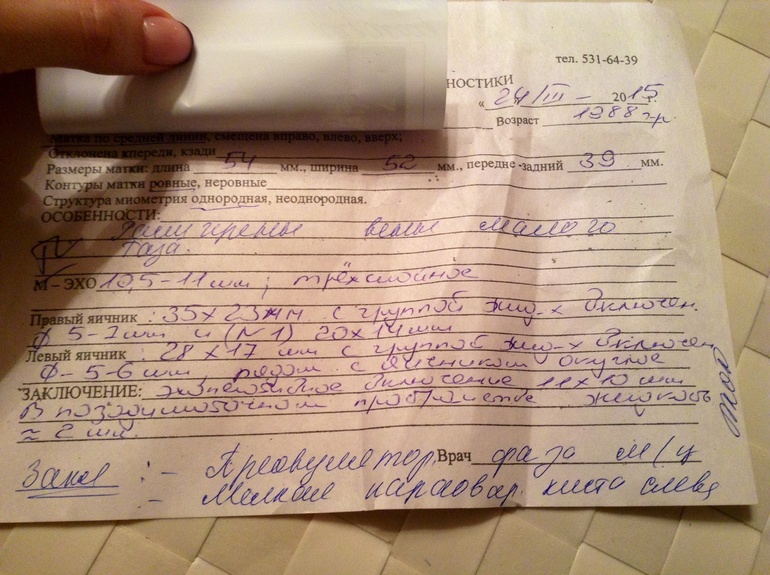 тел. 531-64-39
НОСТИКИ
« 24/III – 2015 г.
Возраст 1988 г.р.
матка по средней линии, смещена вправо, влево, вверх;
Отклонена кпереди, кзади
Размеры матки: длина 54 мм., ширина 52 мм., передне-задний 39 мм.
Контуры матки ровные, неровные
Структура миометрия однородная, неоднородная.
ОСОБЕННОСТИ:
Расширены вены малого
таза.
М – ЭХО 10,5-11 мм ; трёхслойное
Правый яичник : 35 х 23 мм с группой жид-х включен.
ф 5-7 мм и (N1) 20х14 мм
Левый яичник : 28 х 17 мм с группой жид-х включен
ф- 5-6 мм, рядом с яичником округлое
ЗАКЛЮЧЕНИЕ: включение 11х10 мм
В позадиматочном пространстве жидкость
≈ 2 мм.
Врач фаза м/ц
Закл : – Преовулятор.
– Мелкая параовар. киста слева